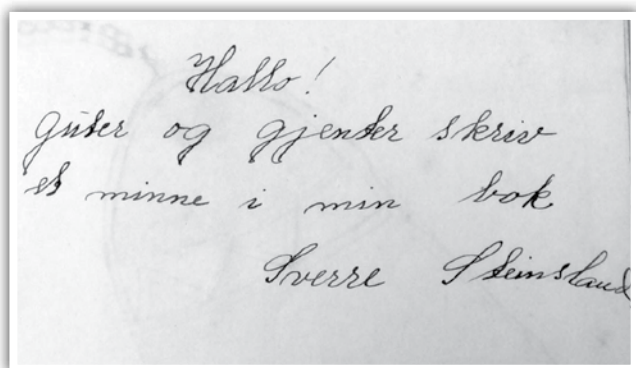 Hallo!
Guter og gjenter skriv
et minne i min bok
Sverre Steinsland